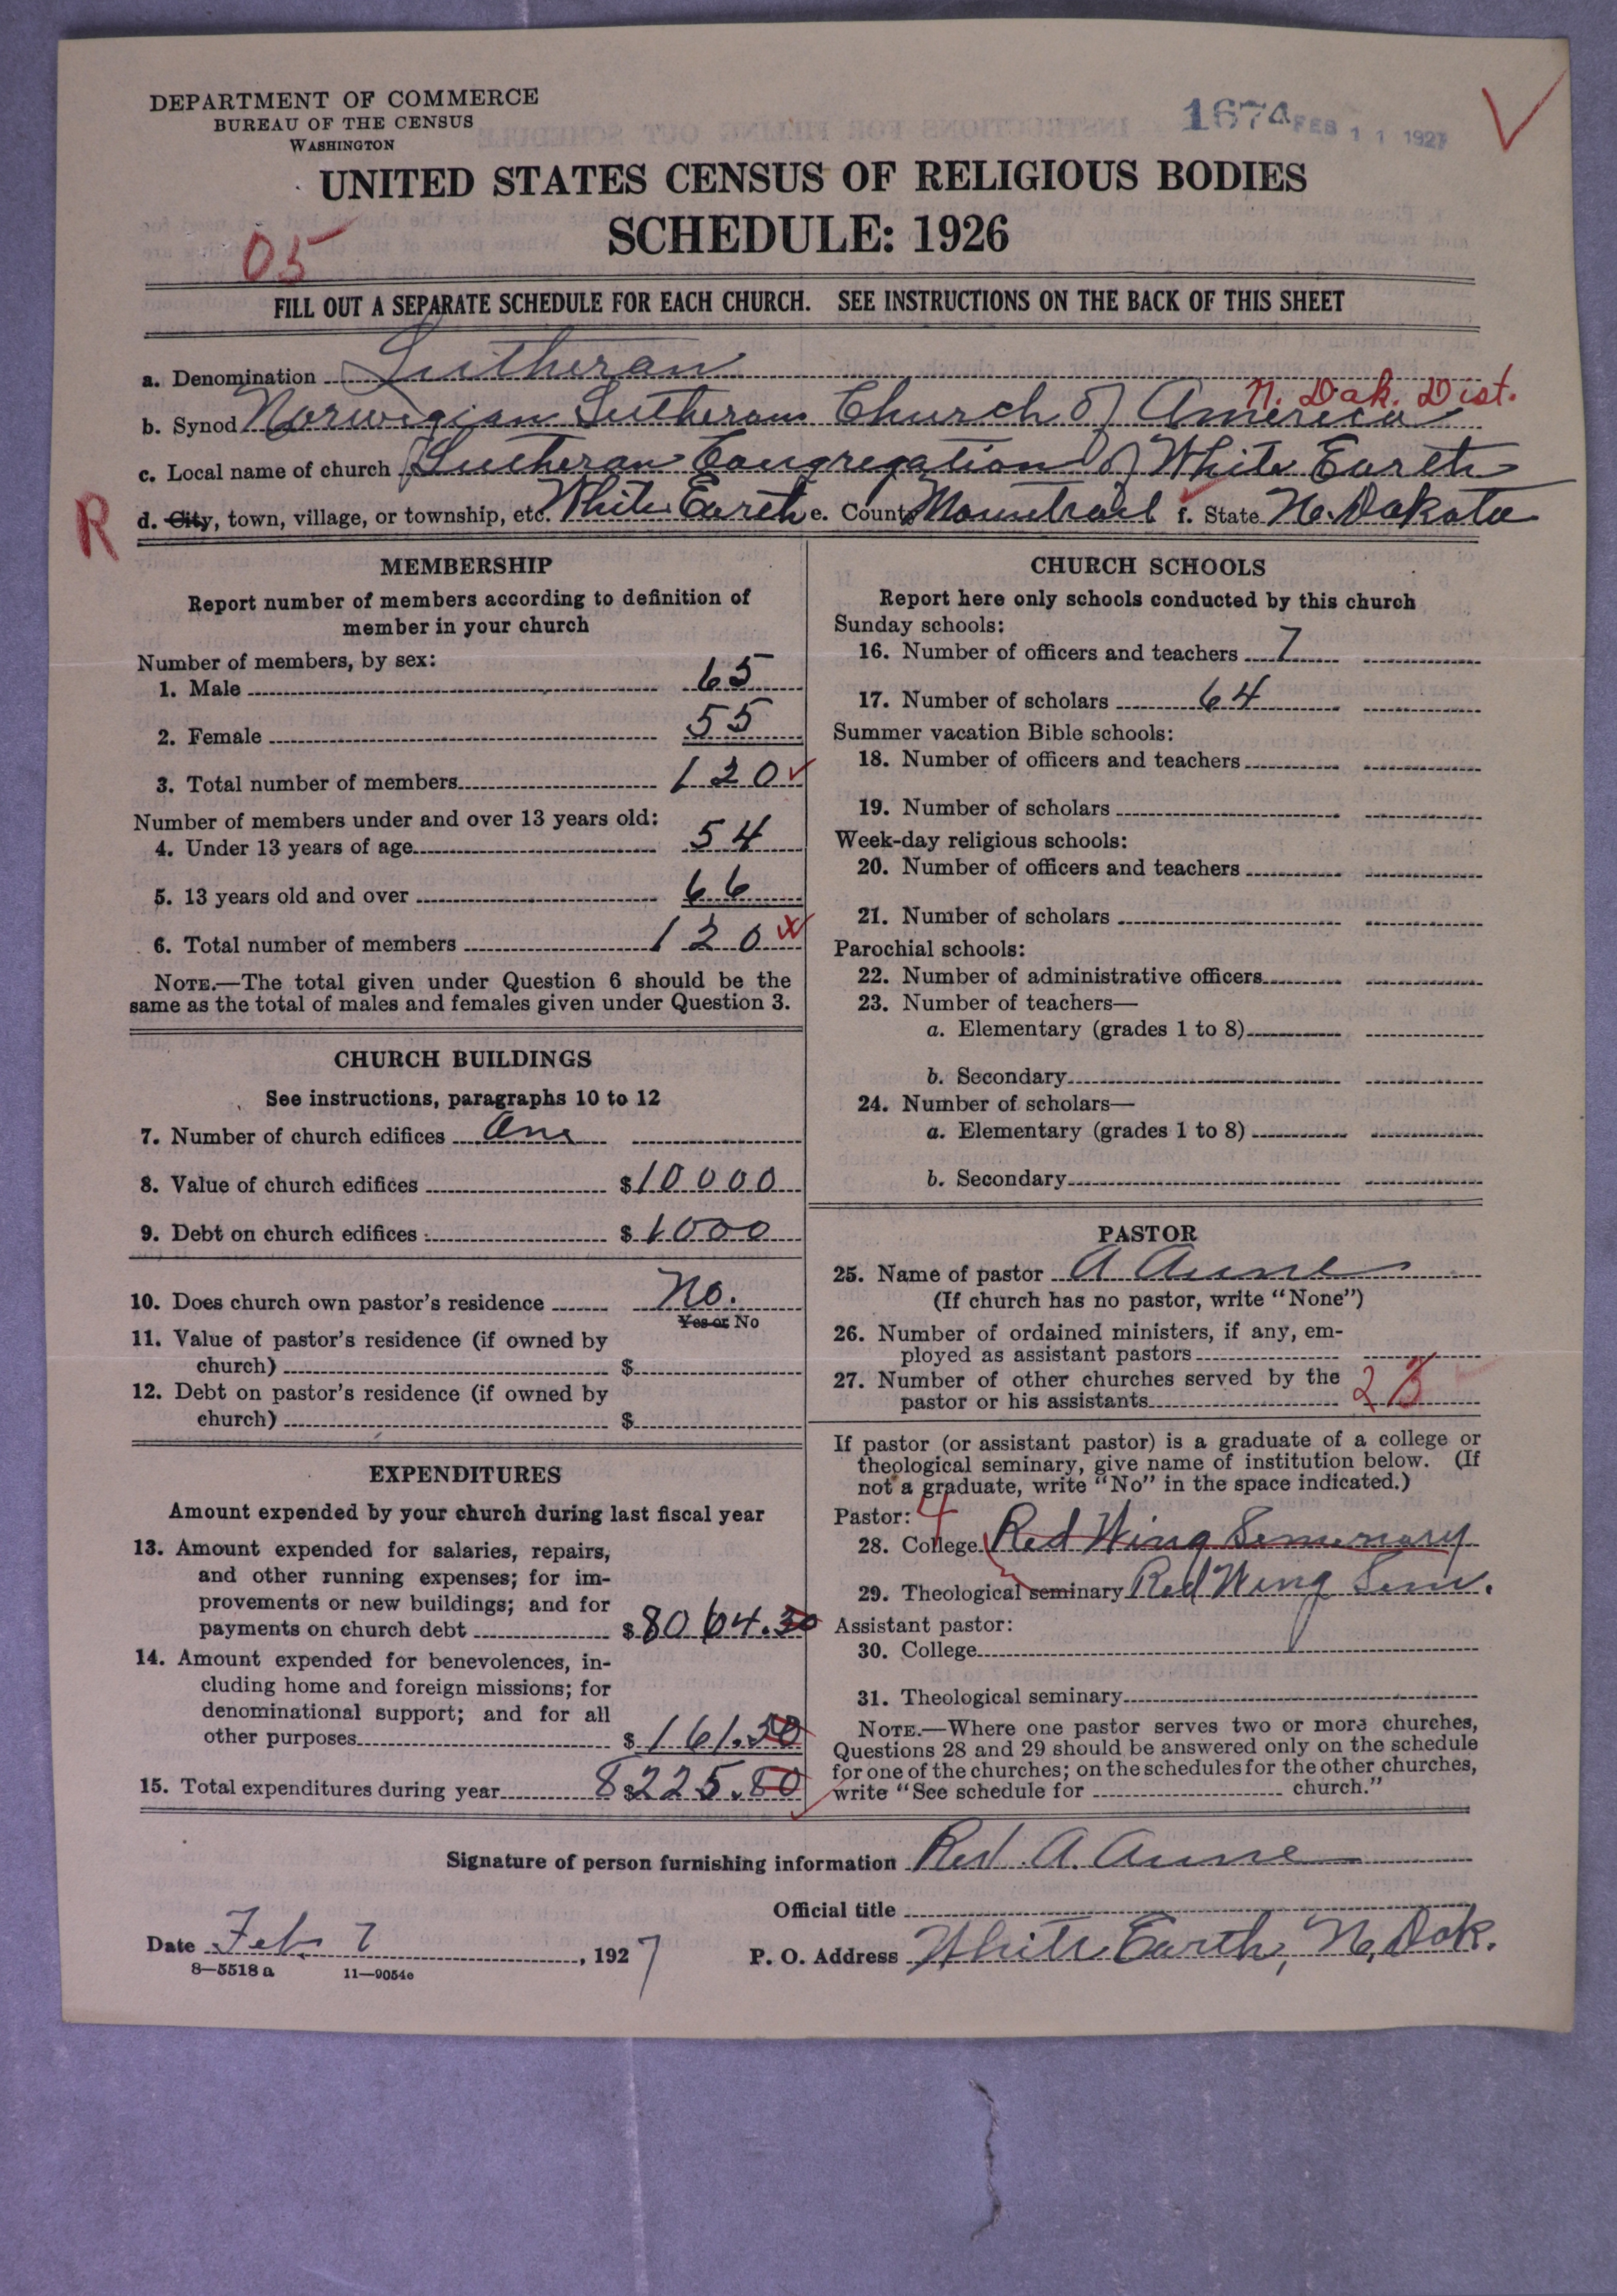 DEPARTMENT OF COMMERCE
BUREAU OF THE CENSUS
WASHINGTON
1674 FEB 11 1927
UNITED STATES CENSUS OF RELIGIOUS BODIES
SCHEDULE: 1926
05
FILL OUT A SEPARATE SCHEDULE FOR EACH CHURCH. SEE INSTRUCTIONS ON THE BACK OF THIS SHEET
a. Denomination Lutheran
N. Dak. Dist.
b. Synod Norwegian Lutheran Church of America
c. Local name of church Lutheran Congregation of White Earth
R
d. City, town, village, or township, etc. White Earth e. County Mountrail f. State No. Dakota
MEMBERSHIP
Report number of members according to definition of
member in your church
Number of members, by sex:
1. Male 65
2. Female 55
3. Total number of members 120
Number of members under and over 13 years old:
4. Under 13 years of age 54
5. 13 years old and over 66
6. Total number of members 120
NOTE.—The total given under Question 6 should be the
same as the total of males and females given under Question 3.
CHURCH BUILDINGS
See instructions, paragraphs 10 to 12
7. Number of church edifices One
8. Value of church edifices $10000
9. Debt on church edifices $1000
10. Does church own pastor's residence No.
Yes or No
11. Value of pastor's residence (if owned by
church) $
12. Debt on pastor's residence (if owned by
church) $
EXPENDITURES
Amount expended by your church during last fiscal year
13. Amount expended for salaries, repairs,
and other running expenses; for im-
provements or new buildings; and for
payments on church debt $8064.30
14. Amount expended for benevolences, in-
cluding home and foreign missions; for
denominational support; and for all
other purposes $161.50
15. Total expenditures during year 8$225.80
CHURCH SCHOOLS
Report here only schools conducted by this church
Sunday schools:
16. Number of officers and teachers 7
17. Number of scholars 64
Summer vacation Bible schools:
18. Number of officers and teachers
19. Number of scholars
Week-day religious schools:
20. Number of officers and teachers
21. Number of scholars
Parochial schools:
22. Number of administrative officers
23. Number of teachers—
a. Elementary (grades 1 to 8)
b. Secondary
24. Number of scholars—
a. Elementary (grades 1 to 8)
b. Secondary
PASTOR
25. Name of pastor A Aune
(If church has no pastor, write "None")
26. Number of ordained ministers, if any, em-
ployed as assistant pastors
27. Number of other churches served by the
pastor or his assistants 2
If pastor (or assistant pastor) is a graduate of a college or
theological seminary, give name of institution below. (If
not a graduate, write "No" in the space indicated.)
Pastor:
28. College Red Wing Seminary
29. Theological seminary Red Wing Sem.
Assistant pastor:
30. College
31. Theological seminary
NOTE.—Where one pastor serves two or more churches,
Questions 28 and 29 should be answered only on the schedule
for one of the churches; on the schedules for the other churches,
write "See schedule for church."
Signature of person furnishing information Rev. A. Aune
Official title
Date Feb 7, 1927
P. O. Address White Earth, N. Dak.
8—5518a 11—9054c